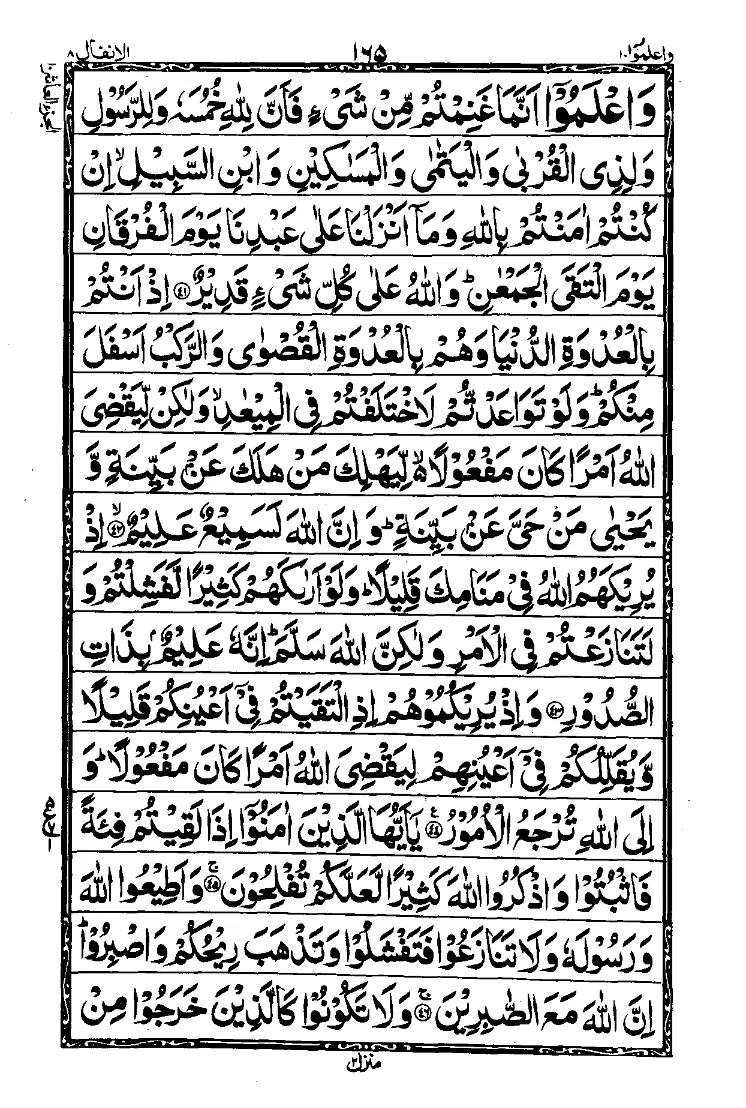 واعلموا ١٠
١٦٥
الانفال ٨
الجزء العاشر
وَاعْلَمُوْٓا اَنَّمَا غَنِمْتُمْ مِّنْ شَيْءٍ فَاَنَّ لِلّٰهِ خُمُسَهٗ وَلِلرَّسُوْلِ
وَلِذِي الْقُرْبٰى وَالْيَتٰمٰى وَالْمَسٰكِيْنِ وَابْنِ السَّبِيْلِ ۙ اِنْ
كُنْتُمْ اٰمَنْتُمْ بِاللّٰهِ وَمَآ اَنْزَلْنَا عَلٰى عَبْدِنَا يَوْمَ الْفُرْقَانِ
يَوْمَ الْتَقَى الْجَمْعٰنِ ؕ وَاللّٰهُ عَلٰى كُلِّ شَيْءٍ قَدِيْرٌ ﴿۴۱﴾ اِذْ اَنْتُمْ
بِالْعُدْوَةِ الدُّنْيَا وَهُمْ بِالْعُدْوَةِ الْقُصْوٰى وَالرَّكْبُ اَسْفَلَ
مِنْكُمْ ؕ وَلَوْ تَوَاعَدْتُّمْ لَاخْتَلَفْتُمْ فِي الْمِيْعٰدِ ۙ وَلٰكِنْ لِّيَقْضِيَ
اللّٰهُ اَمْرًا كَانَ مَفْعُوْلًا ۙ۬ لِّيَهْلِكَ مَنْ هَلَكَ عَنْۢ بَيِّنَةٍ وَّ
يَحْيٰى مَنْ حَيَّ عَنْۢ بَيِّنَةٍ ؕ وَاِنَّ اللّٰهَ لَسَمِيْعٌ عَلِيْمٌ ﴿۴۲﴾ۙ اِذْ
يُرِيْكَهُمُ اللّٰهُ فِيْ مَنَامِكَ قَلِيْلًا ؕ وَلَوْ اَرٰىكَهُمْ كَثِيْرًا لَّفَشِلْتُمْ وَ
لَتَنَازَعْتُمْ فِي الْاَمْرِ وَلٰكِنَّ اللّٰهَ سَلَّمَ ؕ اِنَّهٗ عَلِيْمٌۢ بِذَاتِ
الصُّدُوْرِ ﴿۴۳﴾ وَاِذْ يُرِيْكُمُوْهُمْ اِذِ الْتَقَيْتُمْ فِيْٓ اَعْيُنِكُمْ قَلِيْلًا
وَّيُقَلِّلُكُمْ فِيْٓ اَعْيُنِهِمْ لِيَقْضِيَ اللّٰهُ اَمْرًا كَانَ مَفْعُوْلًا ؕ وَ
اِلَى اللّٰهِ تُرْجَعُ الْاُمُوْرُ ﴿۴۴﴾ۧ يٰٓاَيُّهَا الَّذِيْنَ اٰمَنُوْٓا اِذَا لَقِيْتُمْ فِئَةً
فَاثْبُتُوْا وَاذْكُرُوا اللّٰهَ كَثِيْرًا لَّعَلَّكُمْ تُفْلِحُوْنَ ﴿۴۵﴾ۚ وَاَطِيْعُوا اللّٰهَ
وَرَسُوْلَهٗ وَلَا تَنَازَعُوْا فَتَفْشَلُوْا وَتَذْهَبَ رِيْحُكُمْ وَاصْبِرُوْا ؕ
اِنَّ اللّٰهَ مَعَ الصّٰبِرِيْنَ ﴿۴۶﴾ۚ وَلَا تَكُوْنُوْا كَالَّذِيْنَ خَرَجُوْا مِنْ
منزل ٢